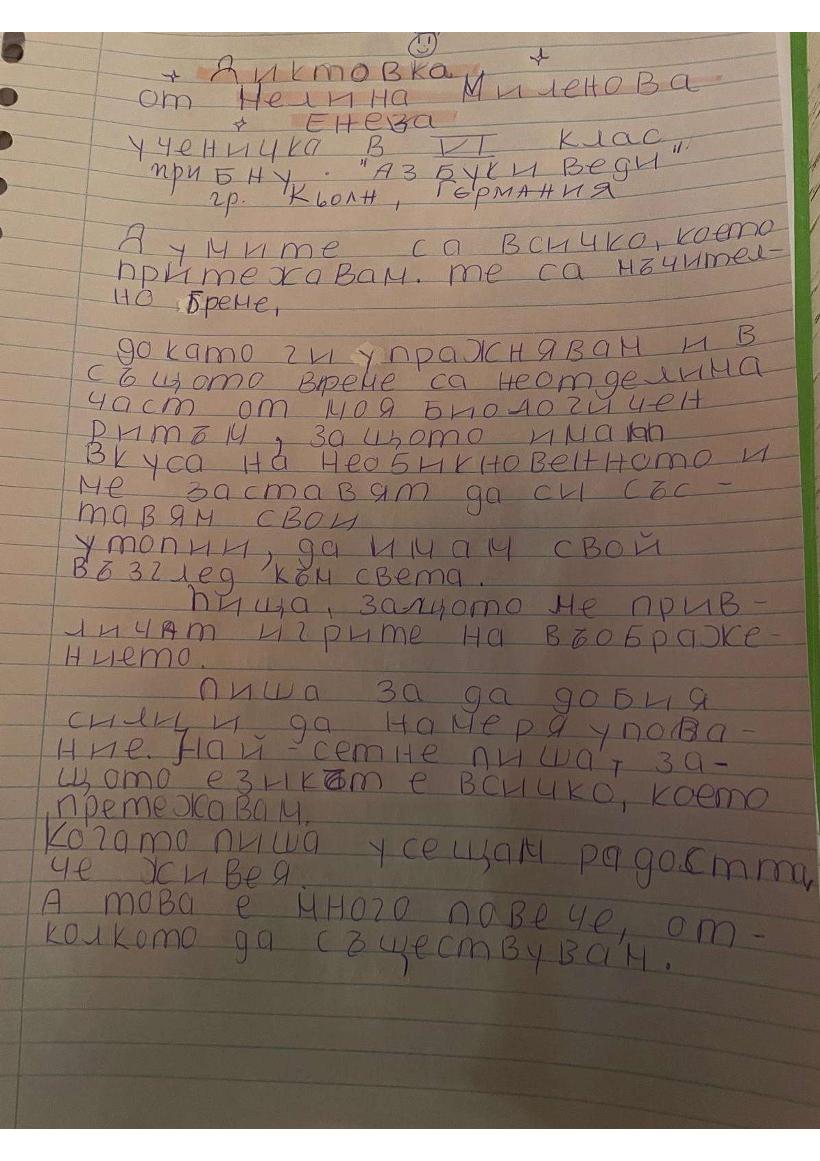 Диктовка
от Нелина Миленова
Енева
ученичка в VI клас
при БНУ. "Аз Буки Веди"
гр. Кьолн, Германия
Думите са всичко, което
притежавам. те са мъчител-
но бреме,
докато ги упражнявам и в
същото време са неотделима
част от моя биологичен
ритъм, защото имат
вкуса на необикновенното и
ме заставят да си със-
тавям свои
утопии, да имам свой
възглед към света.
Пиша, защото ме прив-
личат игрите на въображе-
нието.
пиша за да добия
сили и да намеря упова-
ние. Най-сетне пиша, за-
щото езикът е всичко, което
претежавам.
Когато пиша усещам радостта,
че живея.
А това е много повече, от-
колкото да съществувам.